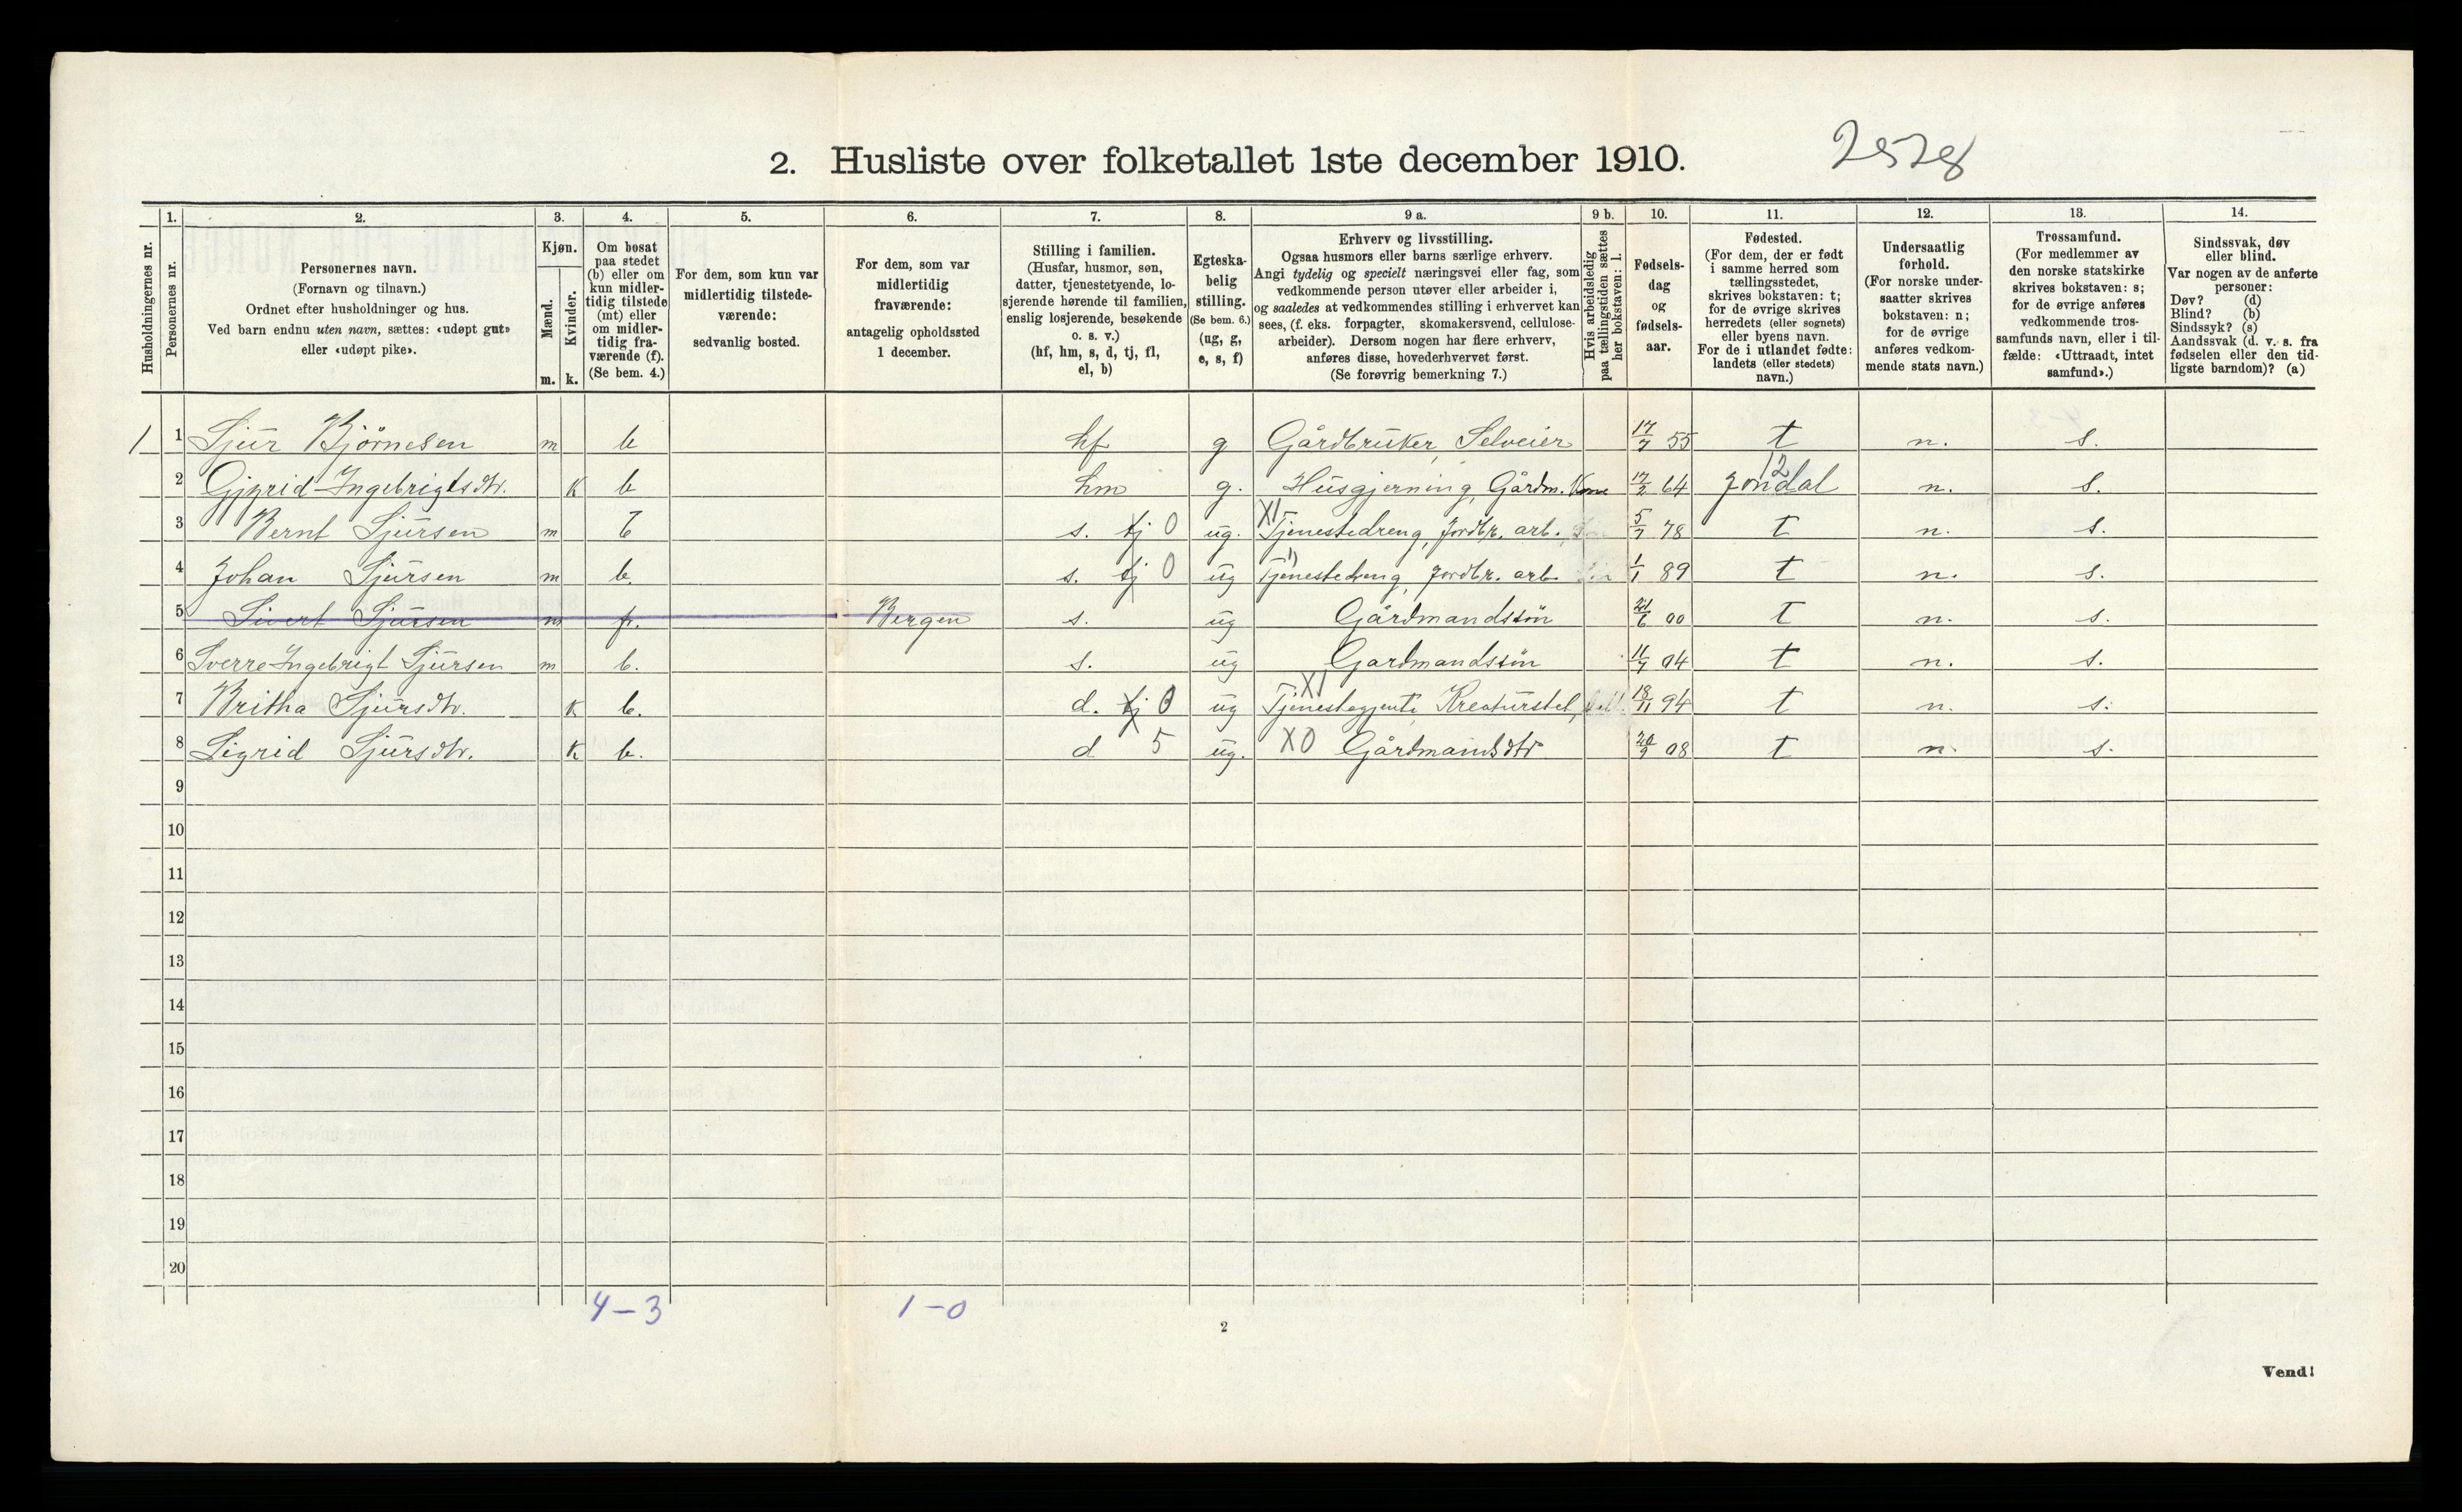 2. Husliste over folketallet 1ste december 1910. 2528
1. 2. 3. 4. 5. 6. 7. 8. 9 a. 9 b. 10. 11. 12. 13. 14.
Husholdningernes nr.
Personernes nr.
Personernes navn.
(Fornavn og tilnavn.)
Ordnet efter husholdninger og hus.
Ved barn endnu uten navn, sættes: «udøpt gut»
eller «udøpt pike».
Kjøn.
Mænd.
Kvinder.
m. k.
Om bosat
paa stedet
(b) eller om
kun midler-
tidig tilstede
(mt) eller
om midler-
tidig fra-
værende (f).
(Se bem. 4.)
For dem, som kun var
midlertidig tilstede-
værende:
sedvanlig bosted.
For dem, som var
midlertidig
fraværende:
antagelig opholdssted
1 december.
Stilling i familien.
(Husfar, husmor, søn,
datter, tjenestetyende, lo-
sjerende hørende til familien,
enslig losjerende, besøkende
o. s. v.)
(hf, hm, s, d, tj, fl,
el, b)
Egteska-
belig
stilling.
(Se bem. 6.)
(ug, g,
e, s, f)
Erhverv og livsstilling.
Ogsaa husmors eller barns særlige erhverv.
Angi tydelig og specielt næringsvei eller fag, som
vedkommende person utøver eller arbeider i,
og saaledes at vedkommendes stilling i erhvervet kan
sees, (f. eks. forpagter, skomakersvend, cellulose-
arbeider). Dersom nogen har flere erhverv,
anføres disse, hovederhvervet først.
(Se forøvrig bemerkning 7.)
Hvis arbeidsledig
paa tællingstiden sættes
her bokstaven: l.
Fødsels-
dag
og
fødsels-
aar.
Fødested.
(For dem, der er født
i samme herred som
tællingsstedet,
skrives bokstaven: t;
for de øvrige skrives
herredets (eller sognets)
eller byens navn.
For de i utlandet fødte:
landets (eller stedets)
navn.)
Undersaatlig
forhold.
(For norske under-
saatter skrives
bokstaven: n;
for de øvrige
anføres vedkom-
mende stats navn.)
Trossamfund.
(For medlemmer av
den norske statskirke
skrives bokstaven: s;
for de øvrige anføres
vedkommende tros-
samfunds navn, eller i til-
fælde: «Uttraadt, intet
samfund».)
Sindssvak, døv
eller blind.
Var nogen av de anførte
personer:
Døv? (d)
Blind? (b)
Sindssyk? (s)
Aandssvak (d. v. s. fra
fødselen eller den tid-
ligste barndom)? (a)
1 1 Sjur Bjørnesen m b hf g Gårdbruker, Selveier 17/7 55 t n. s.
2 Gjyrid Ingebrigtsdtr. k b hm g. Husgjerning, Gårdm. Kone 17/2 64 Jondal 12 n. s.
3 Bernt Sjursen m b s. tj 0 ug. X1 Tjenestedreng, Jordbr. arb. 5/7 78 t n. s.
4 Johan Sjursen m b. s. tj 0 ug Tjenestedreng, Jordbr. arb. 1/1 89 t n. s.
5 Sivert Sjursen m f. Bergen s. ug Gårdmandssön 21/6 00 t n. s.
6 Sverre Ingebrigt Sjursen m b. s. ug Gardmandssön 11/7 04 t n. s.
7 Britha Sjursdtr. k b. d. tj 0 ug X1 Tjenestegjente, Kreaturstel, 18/11 94 t n. s.
8 Sigrid Sjursdtr. k b. d 5 ug. X0 Gårdmandsdtr 20/9 08 t n. s.
9
10
11
12
13
14
15
16
17
18
19
20
4-3 1-0
2
Vend!